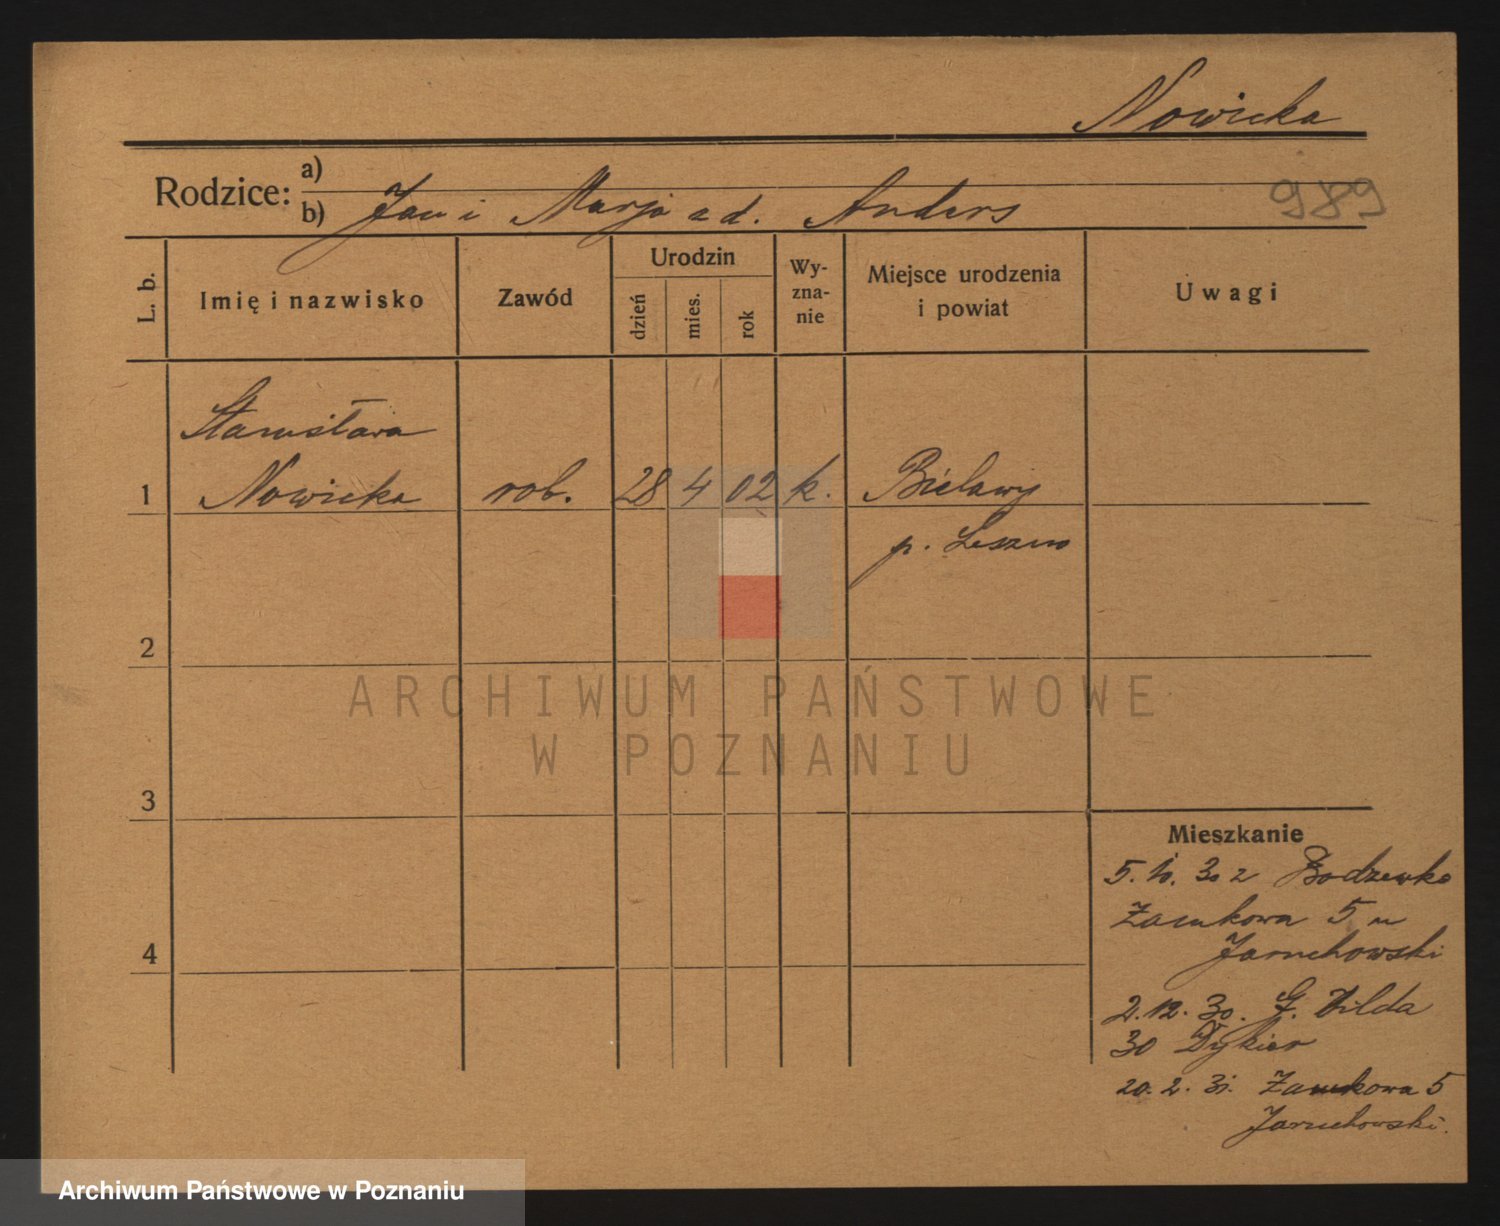 Nowicka
Rodzice: a)
b) Jan i Marja z d. Anders
989
L. b.
Imię i nazwisko
Zawód
Urodzin
dzień
mies.
rok
Wy-
zna-
nie
Miejsce urodzenia
i powiat
Uwagi
Stanisława
1 Nowicka rob. 28 4 02 k. Bielawy
p. Leszno
2
3
4
Mieszkanie
5. 10. 30 z Bodzewko
Zamkowa 5 u
Jaruchowski
2. 12. 30. G. Wilda
30 Dykier
20. 2. 31. Zamkowa 5
Jaruchowski.
ARCHIWUM PAŃSTWOWE
W POZNANIU
Archiwum Państwowe w Poznaniu